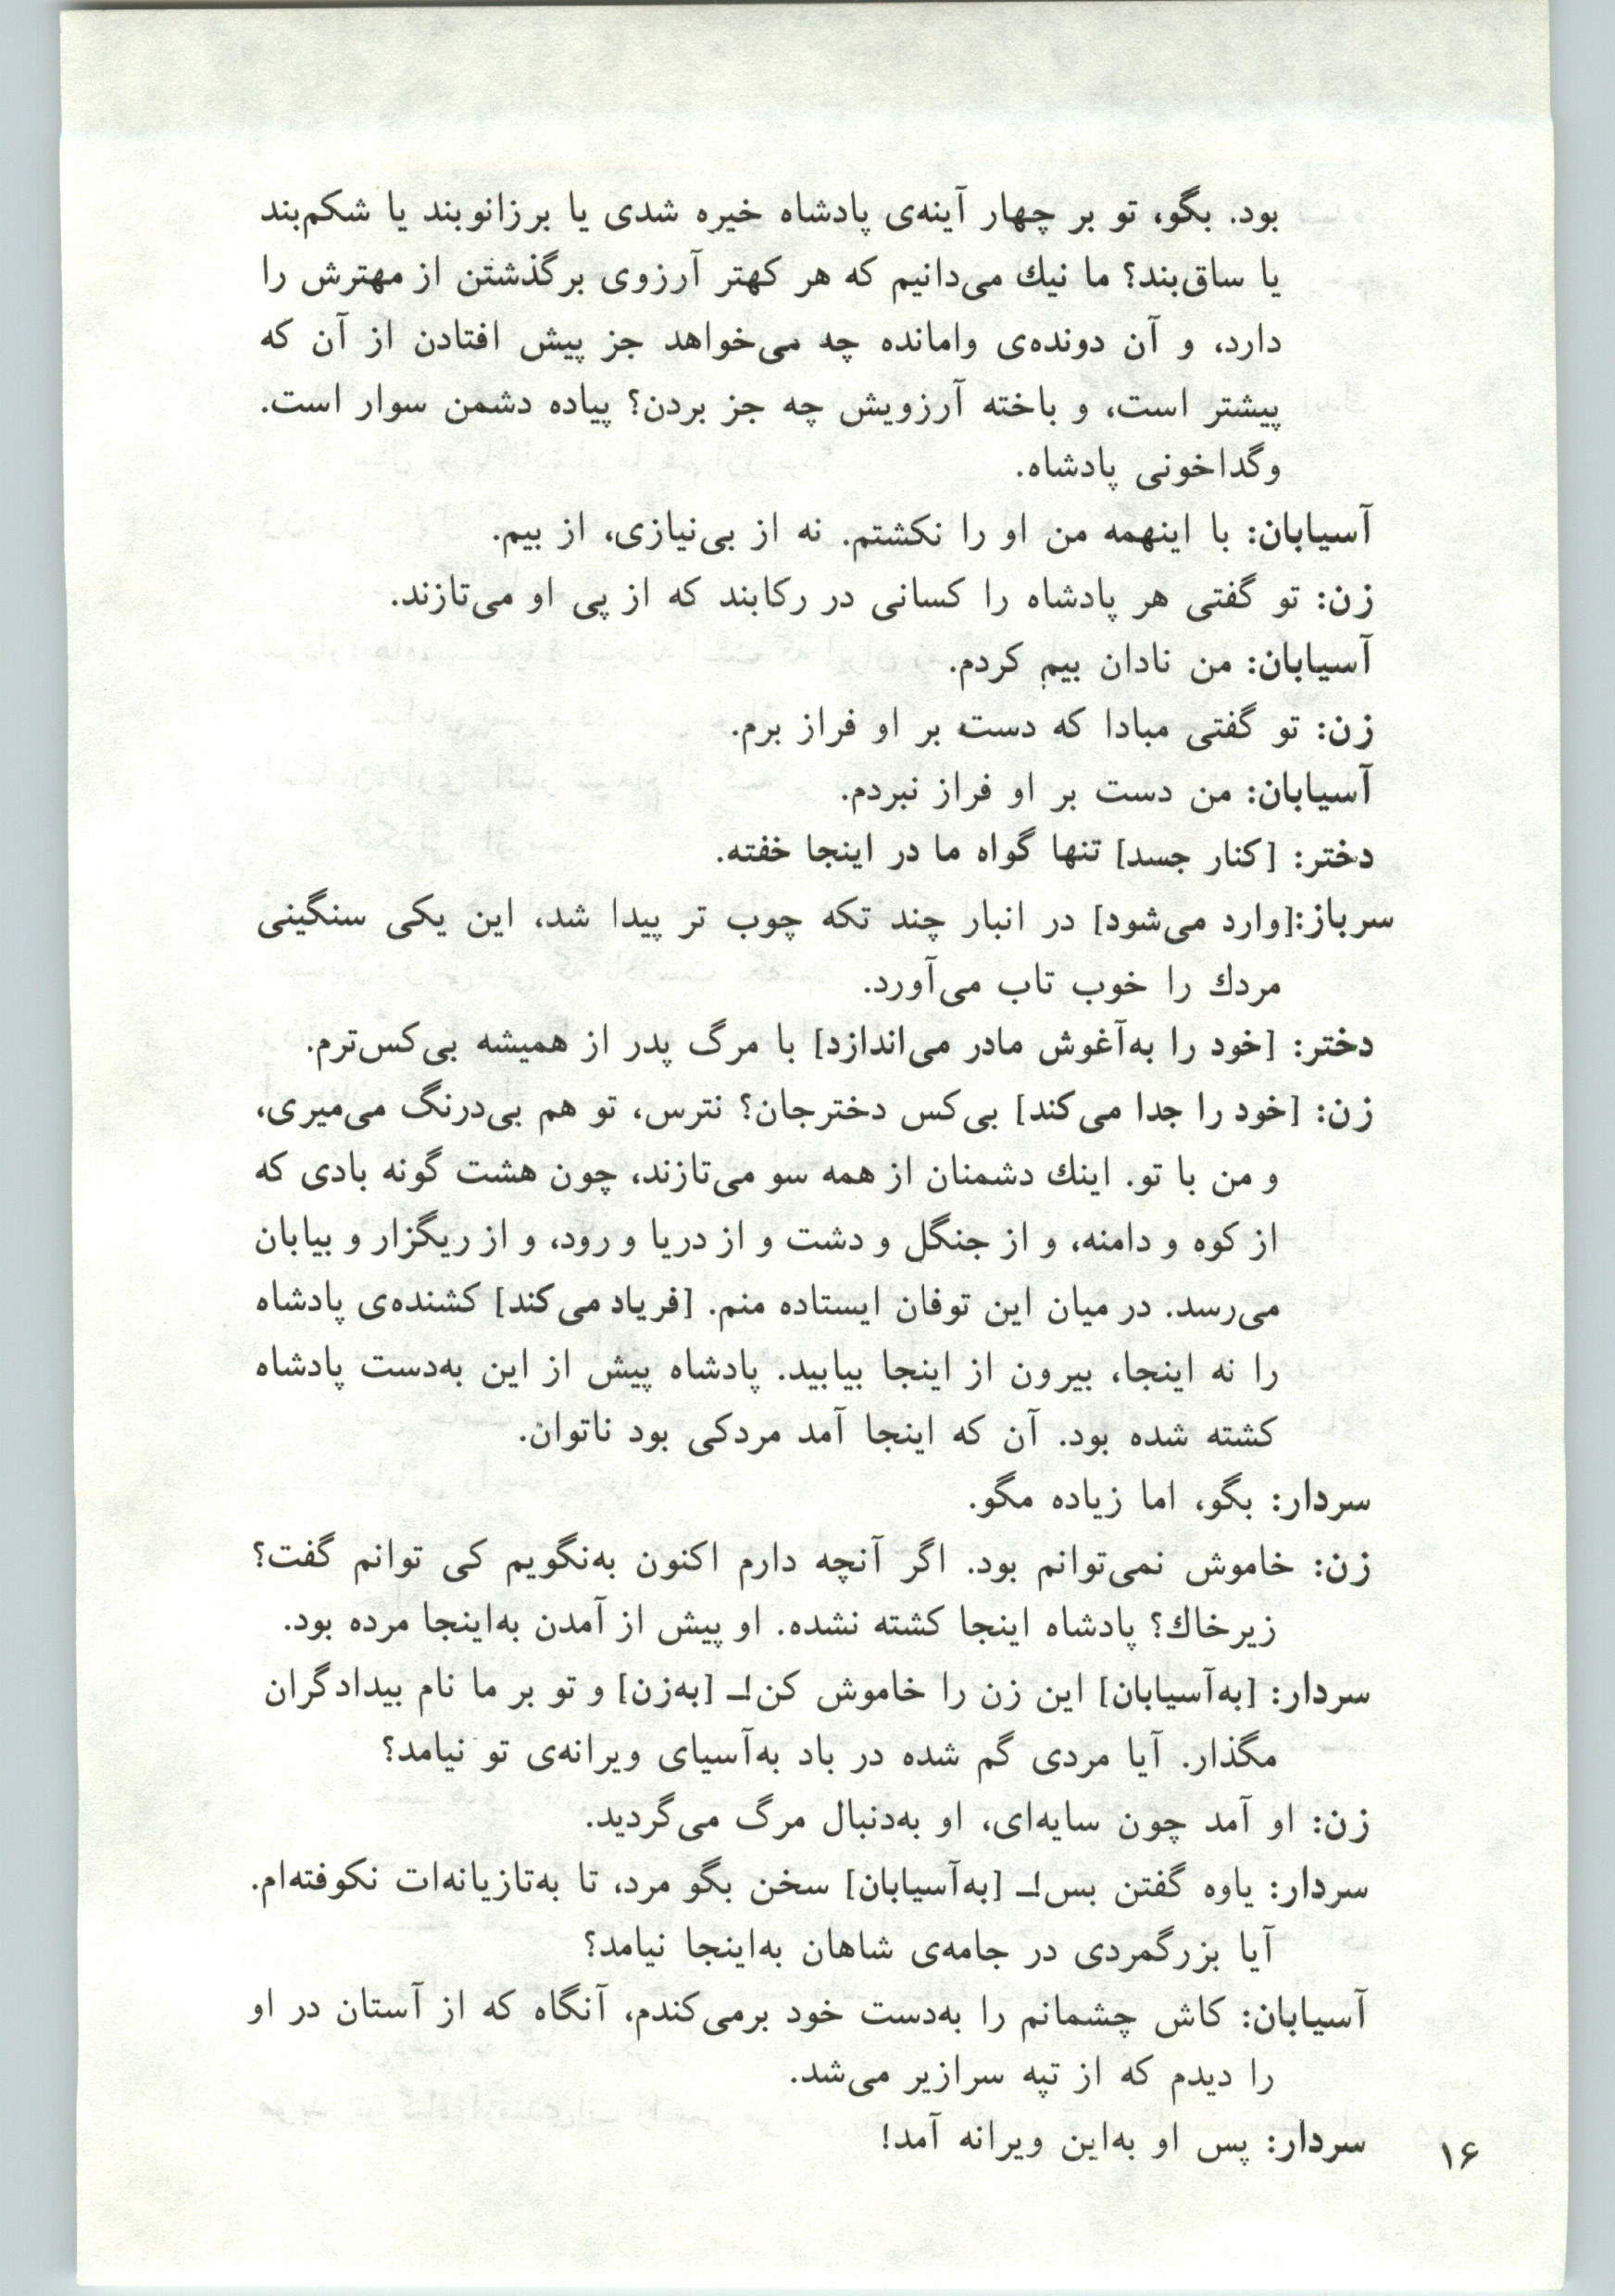 بود. بگو، تو بر چهار آینه‌ی پادشاه خیره شدی یا برزانوبند یا شکم‌بند
یا ساق‌بند؟ ما نیك می‌دانیم که هر کهتر آرزوی برگذشتن از مهترش را
دارد، و آن دونده‌ی وامانده چه می‌خواهد جز پیش افتادن از آن که
پیشتر است، و باخته آرزویش چه جز بردن؟ پیاده دشمن سوار است.
وگداخونی پادشاه.
آسیابان: با اینهمه من او را نکشتم. نه از بی‌نیازی، از بیم.
زن: تو گفتی هر پادشاه را کسانی در رکابند که از پی او می‌تازند.
آسیابان: من نادان بیم کردم.
زن: تو گفتی مبادا که دست بر او فراز برم.
آسیابان: من دست بر او فراز نبردم.
دختر: [کنار جسد] تنها گواه ما در اینجا خفته.
سرباز:[وارد می‌شود] در انبار چند تکه چوب تر پیدا شد، این یکی سنگینی
مردك را خوب تاب می‌آورد.
دختر: [خود را به‌آغوش مادر می‌اندازد] با مرگ پدر از همیشه بی‌کس‌ترم.
زن: [خود را جدا می‌کند] بی‌کس دخترجان؟ نترس، تو هم بی‌درنگ می‌میری،
و من با تو. اینك دشمنان از همه سو می‌تازند، چون هشت گونه بادی که
از کوه و دامنه، و از جنگل و دشت و از دریا و رود، و از ریگزار و بیابان
می‌رسد. در میان این توفان ایستاده منم. [فریاد می‌کند] کشنده‌ی پادشاه
را نه اینجا، بیرون از اینجا بیابید. پادشاه پیش از این به‌دست پادشاه
کشته شده بود. آن که اینجا آمد مردکی بود ناتوان.
سردار: بگو، اما زیاده مگو.
زن: خاموش نمی‌توانم بود. اگر آنچه دارم اکنون به‌نگویم کی توانم گفت؟
زیرخاك؟ پادشاه اینجا کشته نشده. او پیش از آمدن به‌اینجا مرده بود.
سردار: [به‌آسیابان] این زن را خاموش کن!ـ [به‌زن] و تو بر ما نام بیدادگران
مگذار. آیا مردی گم شده در باد به‌آسیای ویرانه‌ی تو نیامد؟
زن: او آمد چون سایه‌ای، او به‌دنبال مرگ می‌گردید.
سردار: یاوه گفتن بس!ـ [به‌آسیابان] سخن بگو مرد، تا به‌تازیانه‌ات نکوفته‌ام.
آیا بزرگمردی در جامه‌ی شاهان به‌اینجا نیامد؟
آسیابان: کاش چشمانم را به‌دست خود برمی‌کندم، آنگاه که از آستان در او
را دیدم که از تپه سرازیر می‌شد.
سردار: پس او به‌این ویرانه آمد!
۱۶